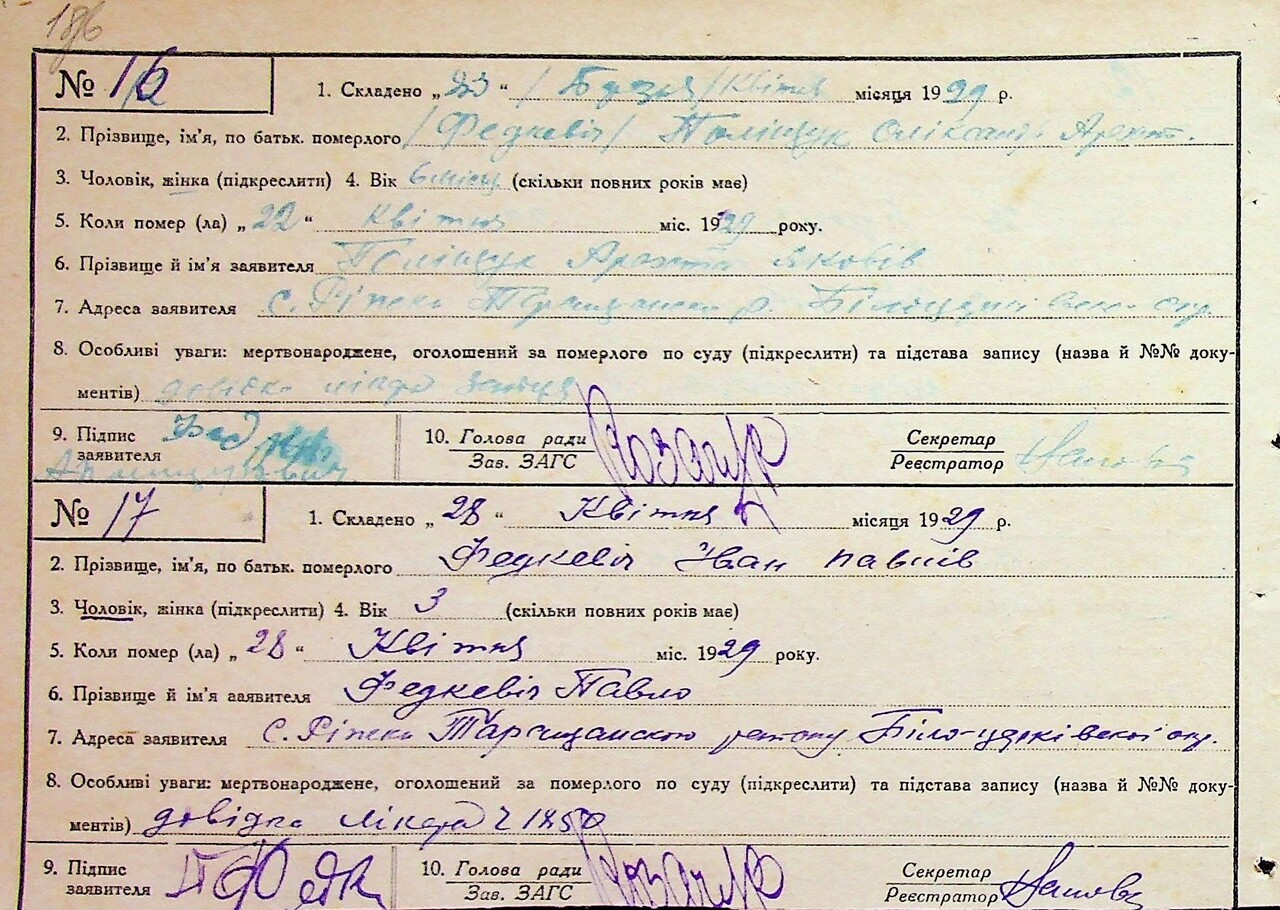 186
№ 16
1. Складено „ 23 “ /Березня/ Квітня місяця 1929 р.
2. Прізвище, ім'я, по батьк. померлого /Федкевіч/ Поліщук Олександ
3. Чоловік, жінка (підкреслити) 4. Вік 6 місяц (скільки повних років має)
5. Коли помер (ла) „ 22 “ Квітня міс. 1929 року.
6. Прізвище й ім'я заявителя Поліщук Яковів
7. Адреса заявителя с. Ріпки Таращанськ р. Білоцерківськ окр.
8. Особливі уваги: мертвонароджене, оголошений за померлого по суду (підкреслити) та підстава запису (назва й №№ доку-
ментів) довідка
9. Підпис
заявителя
10. Голова ради
Зав. ЗАГС
Секретар
Реєстратор
№ 17
1. Складено „ 28 “ Квітня місяця 1929 р.
2. Прізвище, ім'я, по батьк. померлого Федкевіч Іван Павлів
3. Чоловік, жінка (підкреслити) 4. Вік 3 (скільки повних років має)
5. Коли помер (ла) „ 28 “ Квітня міс. 1929 року.
6. Прізвище й ім'я заявителя Федкевіч Павло
7. Адреса заявителя с. Ріпки Таращанского району Біло-церківської окр.
8. Особливі уваги: мертвонароджене, оголошений за померлого по суду (підкреслити) та підстава запису (назва й №№ доку-
ментів) довідка лікаря ч 1850
9. Підпис
заявителя
10. Голова ради
Зав. ЗАГС
Секретар
Реєстратор